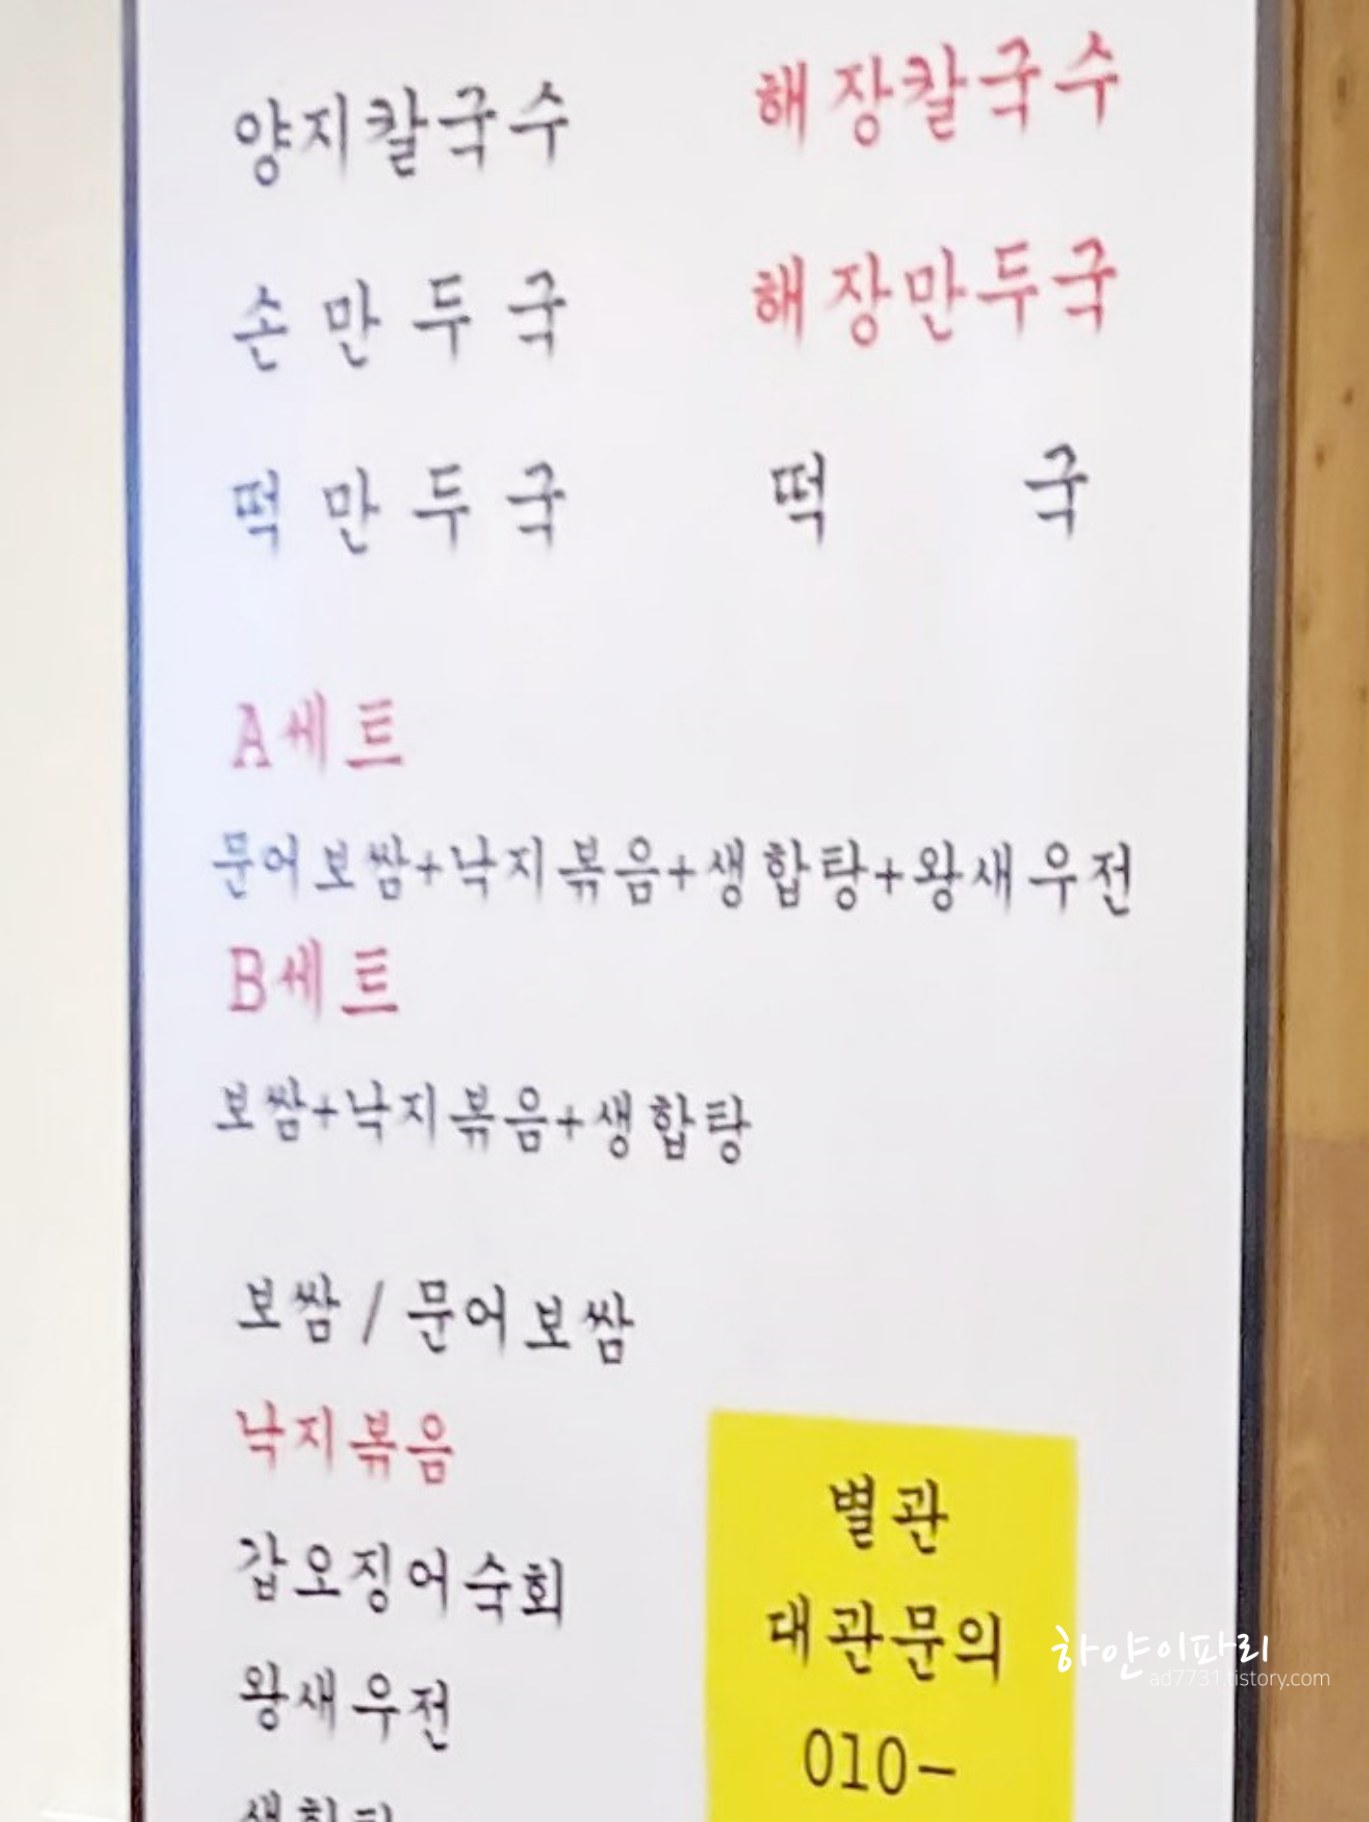 양지칼국수 해장칼국수
손만두국 해장만두국
떡만두국 떡국
A세트
문어보쌈+낙지볶음+생합탕+왕새우전
B세트
보쌈+낙지볶음+생합탕
보쌈 / 문어보쌈
낙지볶음
갑오징어숙회
왕새우전
별관
대관문의
010-
하얀이파리
ad7731.tistory.com